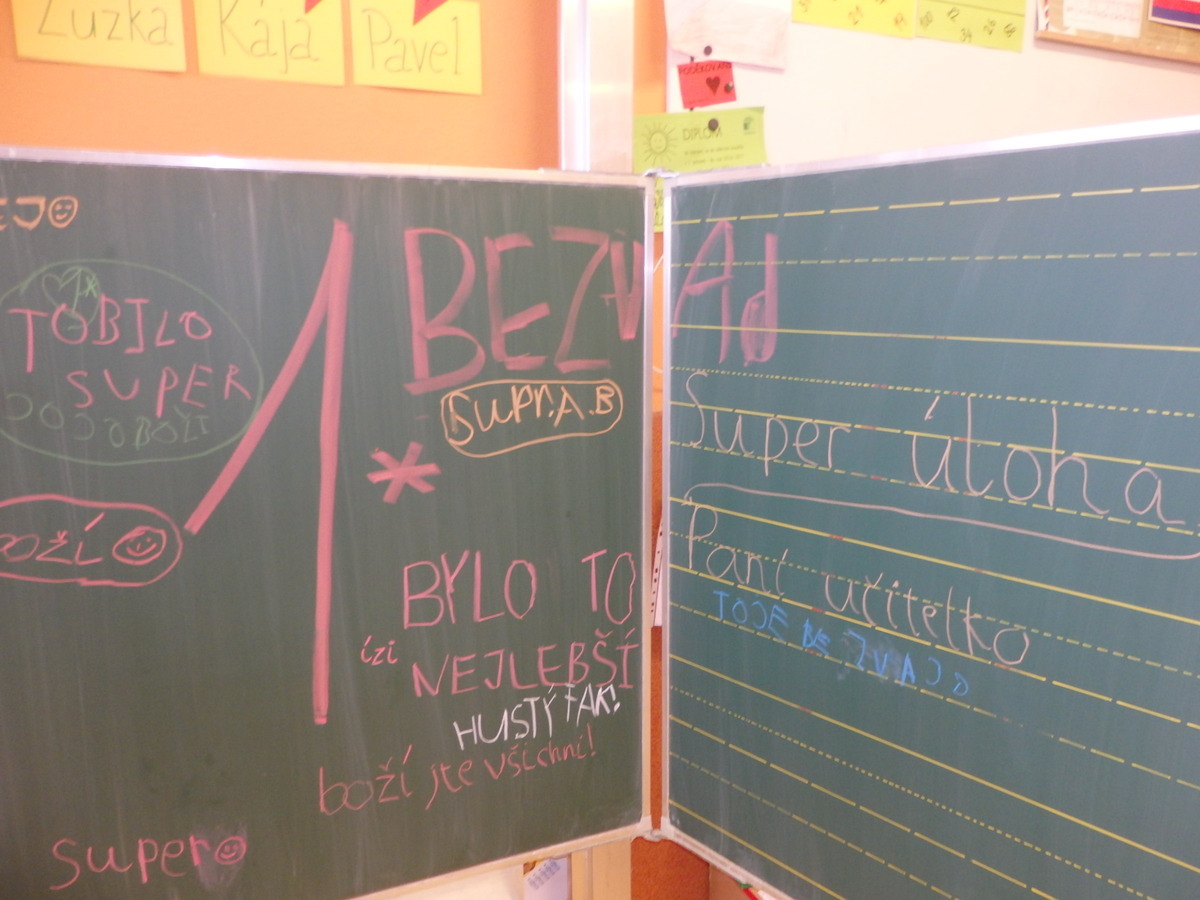 Zuzka
Kája
Pavel
DIPLOM
TOBJLO
SUPER
BOŽÍ
super
1*
BEZVAd
SUPr.A.B
BYLO TO
ízí
NEJLEBŠÍ
HUSTÝ FAK!
boží jte všichni!
Super úloha
Paní učitelko
TOJE BEZVAJO